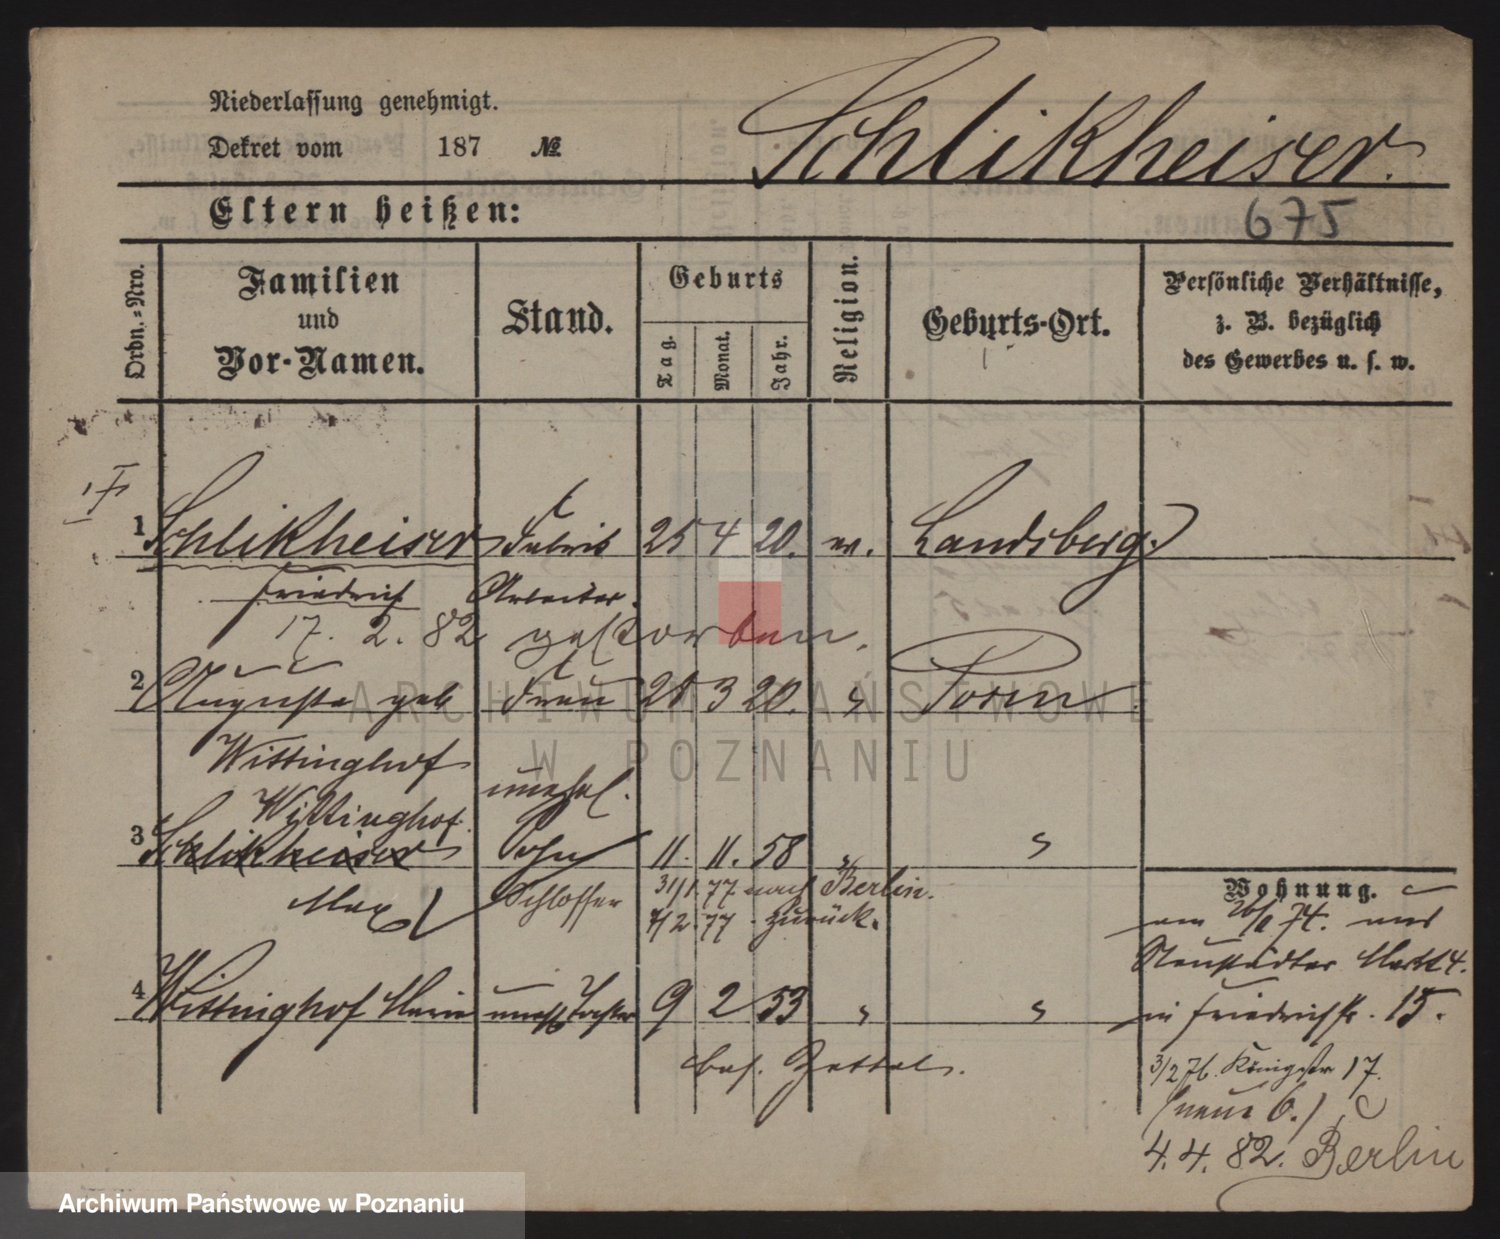 Niederlassung genehmigt.
Dekret vom 187 №
Schlikheiser.
Eltern heißen:
675
Ordn.-Nro.
Familien
und
Vor-Namen.
Stand.
Geburts
Tag.
Monat.
Jahr.
Religion.
Geburts-Ort.
Persönliche Verhältnisse,
z. B. bezüglich
des Gewerbes u. s. w.
1 Schlikheiser Fabrik 25 4 20. ev. Landsberg.
Friedrich Arbeiter.
17. 2. 82 gestorben.
2 Auguste geb Frau 3 20. " Posen
Wittinghof
unehel.
Wittinghof.
3 Schlikheiser Sohn 11. 11. 58 " "
Max Schlosser 31/1. 77 nach Berlin.
4/2. 77. zurück.
4 Wittinghof Marie unehl Tochter 9 2 53 " "
bes. Zettel.
Wohnung.
am 74. aus
Neustädter Markt 4.
in Friedrichstr. 15.
3/2 76. Königstr 17.
(neue 6.)
4. 4. 82. Berlin
ARCHIWUM PAŃSTWOWE
W POZNANIU
Archiwum Państwowe w Poznaniu